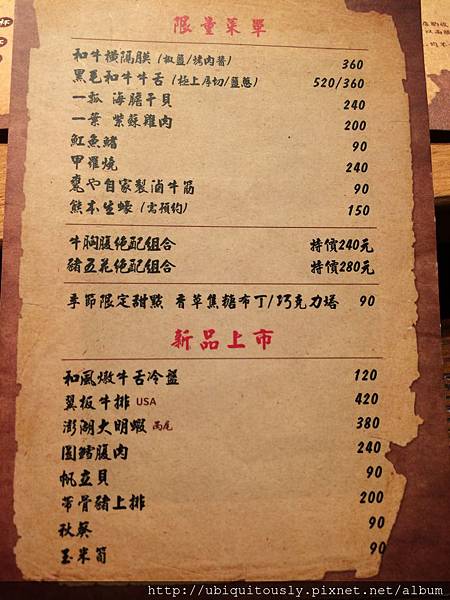 限量菜單
和牛橫隔膜(椒鹽/烤肉醬) 360
黑毛和牛牛舌(極上厚切/鹽蔥) 520/360
一瓢 海膽干貝 240
一葉 紫蘇雞肉 200
魟魚鰭 90
甲羅燒 240
甕や自家製滷牛筋 90
熊本生蠔(需預約) 150
牛胸腹絕配組合 特價240元
豬五花絕配組合 特價280元
季節限定甜點 香草焦糖布丁/巧克力塔 90
新品上市
和風燉牛舌冷盤 120
翼板牛排 USA 420
澎湖大明蝦 兩尾 380
圓鱈腹肉 240
帆立貝 90
帶骨豬上排 200
秋葵 90
玉米筍 90
http://ubiquitously.pixnet.net/album